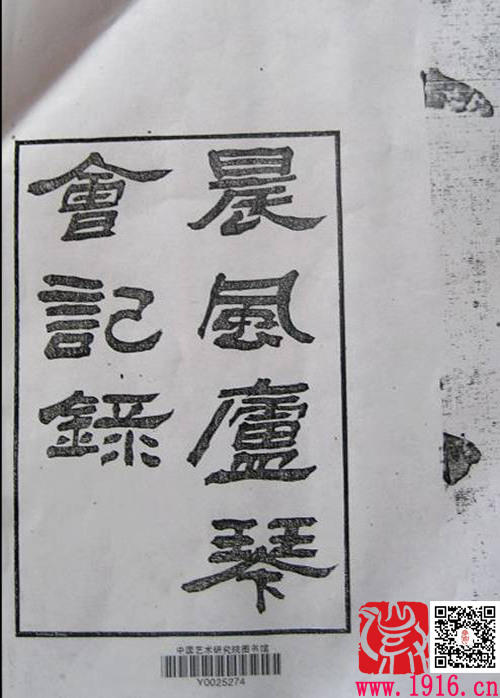 晨風廬琴
會記錄
中国艺术研究院图书馆
Y0025274
www.1916.cn